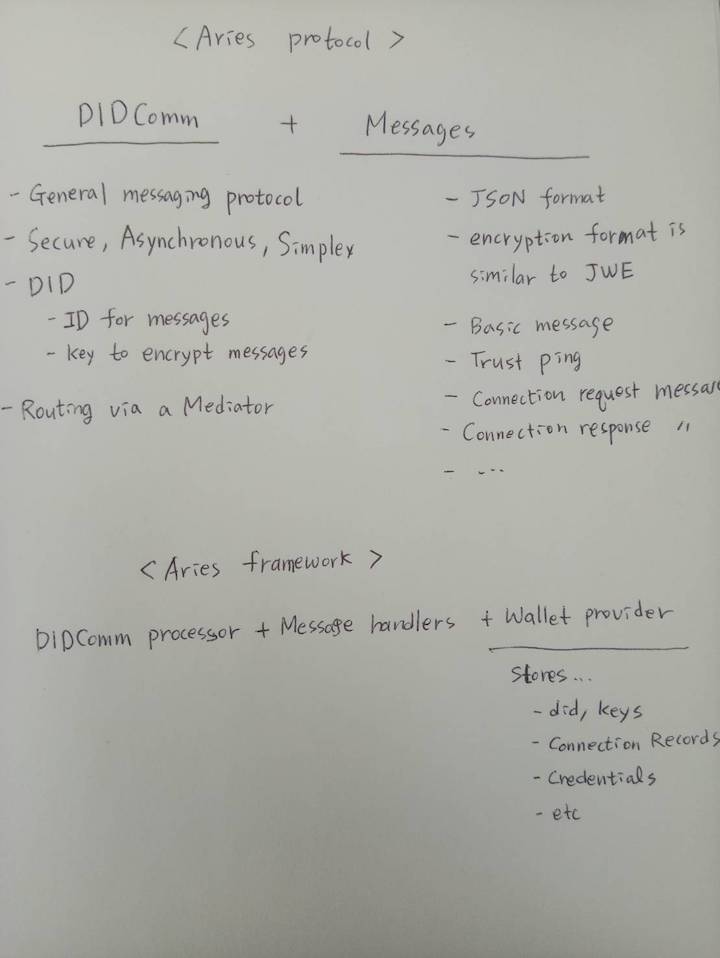 <Aries protocol>
DIDComm + Messages
- General messaging protocol
- Secure, Asynchronous, Simplex
- DID
- ID for messages
- key to encrypt messages
- Routing via a Mediator
- JSON format
- encryption format is
similar to JWE
- Basic message
- Trust ping
- Connection request message
- Connection response 〃
- ...
<Aries framework>
DIDComm processor + Message handlers + Wallet provider
Stores...
- did, keys
- Connection Records
- Credentials
- etc